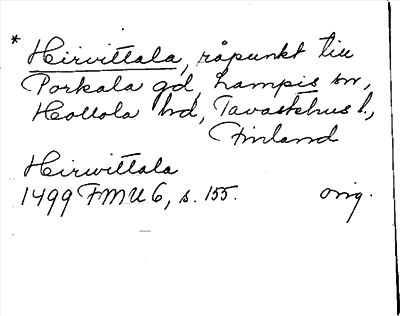 * Hirvittala, råpunkt till
Porkala gd, Lampis sn,
Hollola hd, Tavastehus l.,
Finland
Hirwittala
1499 FMU 6, s. 155. orig.